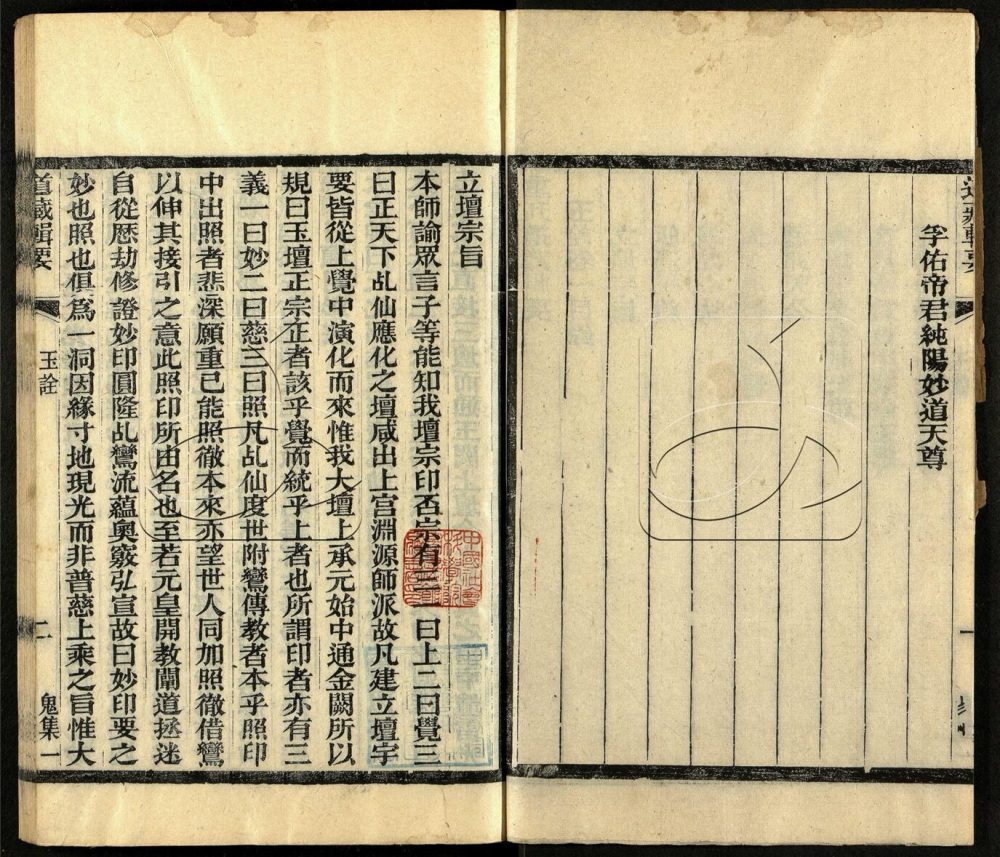 孚佑帝君純陽妙道天尊
一
立壇宗旨
本師諭眾言子等能知我壇宗印否宗有三一曰上二曰覺三
曰正天下乩仙應化之壇咸出上宮淵源師派故凡建立壇宇
要皆從上覺中演化而來惟我大壇上承元始中通金闕所以
規曰玉壇正宗正者該乎覺而統乎上者也所謂印者亦有三
義一曰妙二曰慈三曰照凡乩仙度世附鸞傳教者本乎照印
中出照者悲深願重已能照徹本來亦望世人同加照徹借鸞
以伸其接引之意此照印所由名也至若元皇開教闡道拯迷
自從歷劫修證妙印圓隆乩鸞流蘊奧竅弘宣故曰妙印要之
妙也照也俱為一洞因緣寸地現光而非普慈上乘之旨惟大
道藏輯要
玉詮
二
鬼集一